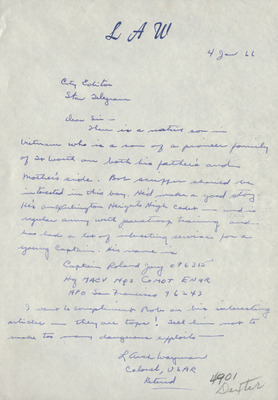 LAW
4 Jan 66
City Editor
Star Telegram
Dear Sir —
There is a native son in
Vietnam who is a son of a pioneer family
of Ft Worth on both his father's and
Mother's side. Bob should be
interested in this boy. He'd make a good story
He's an Arlington Heights High Cadet — and is
regular army with paratroop training and
has had a lot of interesting service for a
young Captain. His name is
Captain Roland
Hq MACV
APO San Francisco 96243
I want to compliment Bob on his interesting
articles — they are tops! Tell him not to
make too many dangerous exploits —
Colonel, USAR
Retired
4901